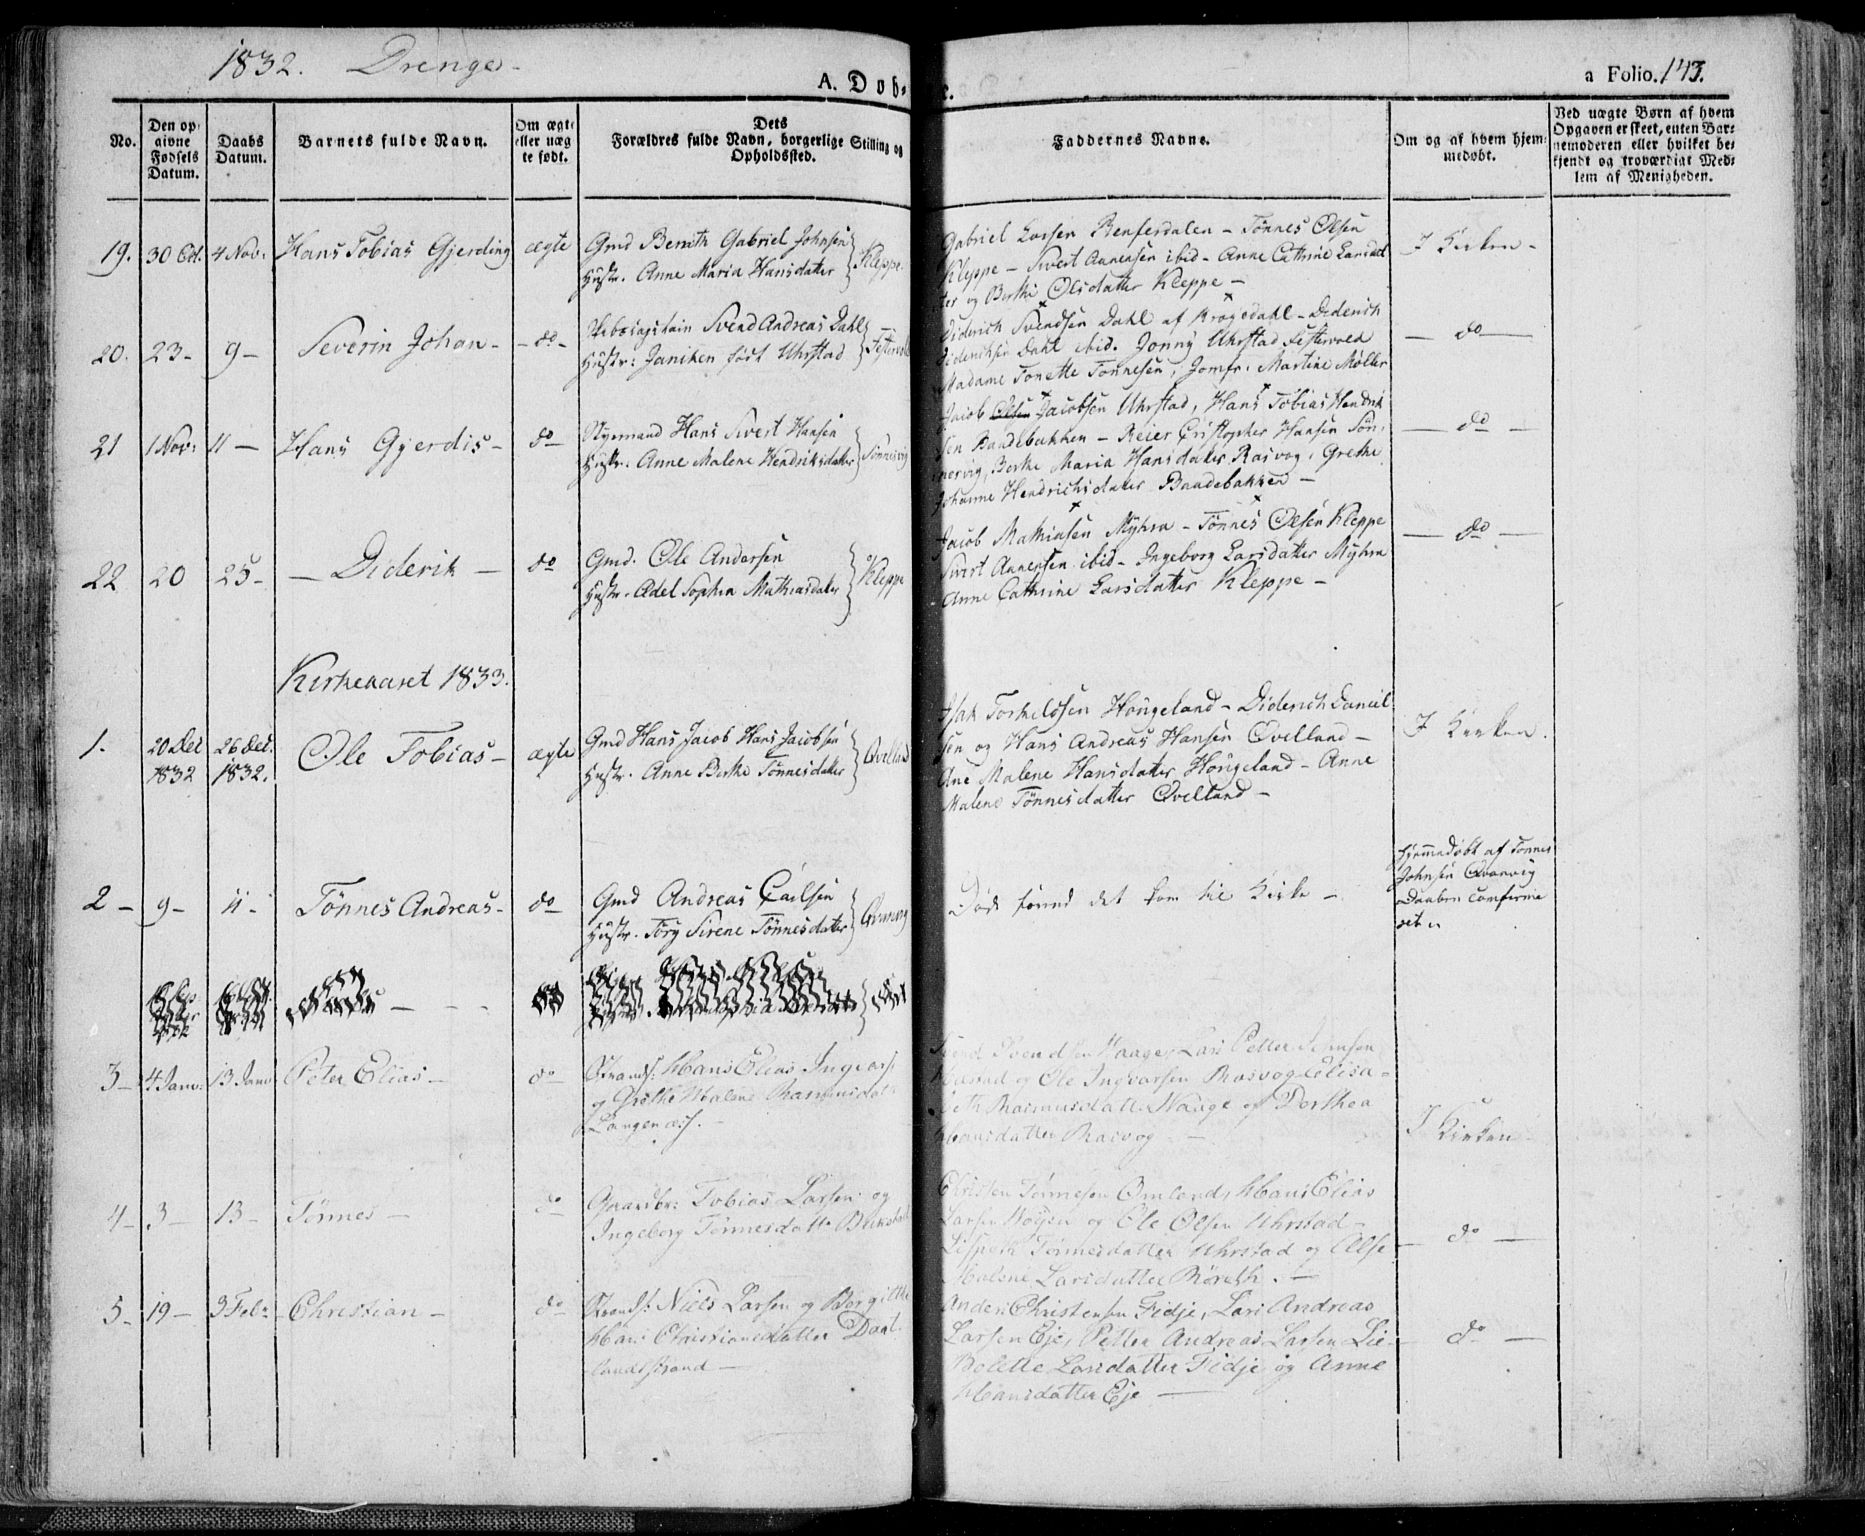 1832. Drenge -
A. Døb-
e.
a Folio. 143.
No.
Den op-
givne
Fødsels
Datum.
Daabs
Datum.
Barnets fulde Navn.
Om ægte
eller uæg
te født.
Dets
Forældres fulde Navn, borgerlige Stilling og
Opholdssted.
Faddernes Navne.
Om og af hvem hjem-
medøbt.
Ved uægte Børn af hvem
Opgaven er skeet, enten Bar-
nemoderen eller hvilket be-
kjendt og troværdigt Med-
lem af Menigheden.
19. 30 Oct. 4 Nov: Hans Tobias Gjerding ægte
Gmd Bernth Gabriel Johnsen
Hustr. Anne Maria Hansdatter } Kleppe.
Gabriel Larsen Tønnes Olsen
Kleppe - Sivert Aanensen ibid - Anne Cathrine Larsdat
ter og Berthe Olsdatter Kleppe -
I Kirken -
20. 23 - 9 - Severin Johan - - do -
Svend Andreas Dahl
Hustr: Janiken født Uhrstad }
Diderich Svendsen Dahl af Kragedahl - Diderich
Diderichsen Dahl ibid. Jonny Uhrstad Festervold
Madame Tonette Tønnesen, Jomfr. Martine Møller
- do -
21 1 Nov: 11 - Hans Gjerdis - do -
Styrmand Hans Sivert Hansen
Hustr. Anne Malene Hendriksdatter } Sønnervig
Jacob Olsen Jacobsen Uhrstad, Hans Tobias Hendrik
sen Baadebakken - Reier Cristopher Hansen Søn-
nervig, Berthe Maria Hansdatter Rasvog, Grethe
Johanne Hendrichsdatter Baadebakken -
- do -
22 20 25 - - Diderik - do
Gmd. Ole Andersen
Hustr. Adel Sophia Mathiasdatter } Kleppe
Jacob Mathiasen Myhra - Tønnes Olsen Kleppe
Sivert Aanensen ibid - Ingeborg Larsdatter Myhra
Anne Cathrine Larsdatter Kleppe -
- do -
Kirkeaaret 1833.
1. 20 Dec 1832 26 Dec. 1832. Ole Tobias - ægte
Gmd Hans Jacob Hans Jacobsen
Hustr. Anne Berthe Tønnesdatter } Qvelland
Isak Torkeldsen Hougeland - Diderich Daniel
sen og Hans Andreas Hansen Qvelland -
Ane Malene Hansdatter Hougeland - Anne
Malene Tønnesdatter Qvelland -
I Kirken.
2 - 9 - 11 - Tønnes Andreas - do -
Gmd Andreas Carlsen
Hustr. Tørg Sirene Tønnesdatter }
Død førend det kom til Kirke -
Hjemmedøbt af Tønnes
Johnsen Qvanvig
Daaben comfirme
ret
3 - 4 Janv: 13 Janv Peter Elias - do -
Strands: Hans Elias Ingvars
g Grethe Malene Rasmusdat
Langenæs. -
Svend Svendsen Haage, Lars Petter Johnsen
og Ole Ingvarsen Rasvog Elisa -
beth Rasmusdatter Haage og Dorthea
Hansdatter Rasvog -
I Kirken -
4 - 3 - 13 - Tønnes - do
Gaardbr: Tobias Larsen og
Ingeborg Tønnesdatter
Christen Tønnesen Omland, Hans Elias
Larsen og Ole Olsen Uhrstad -
Lisbeth Tønnesdatter Uhrstad og Else
Malene Larsdatter -
- do -
5 - 19 - 3 Febr Christian - do -
Strands: Niels Larsen og Borgitte
Maria Christiansdatter Daat-
landsstrand -
Anders Christensen Fidje, Lars Andreas
Larsen Eje, Petter Andreas Larsen Lie
Bolette Larsdatter Fidje og Anne
Hansdatter Eje -
- do -